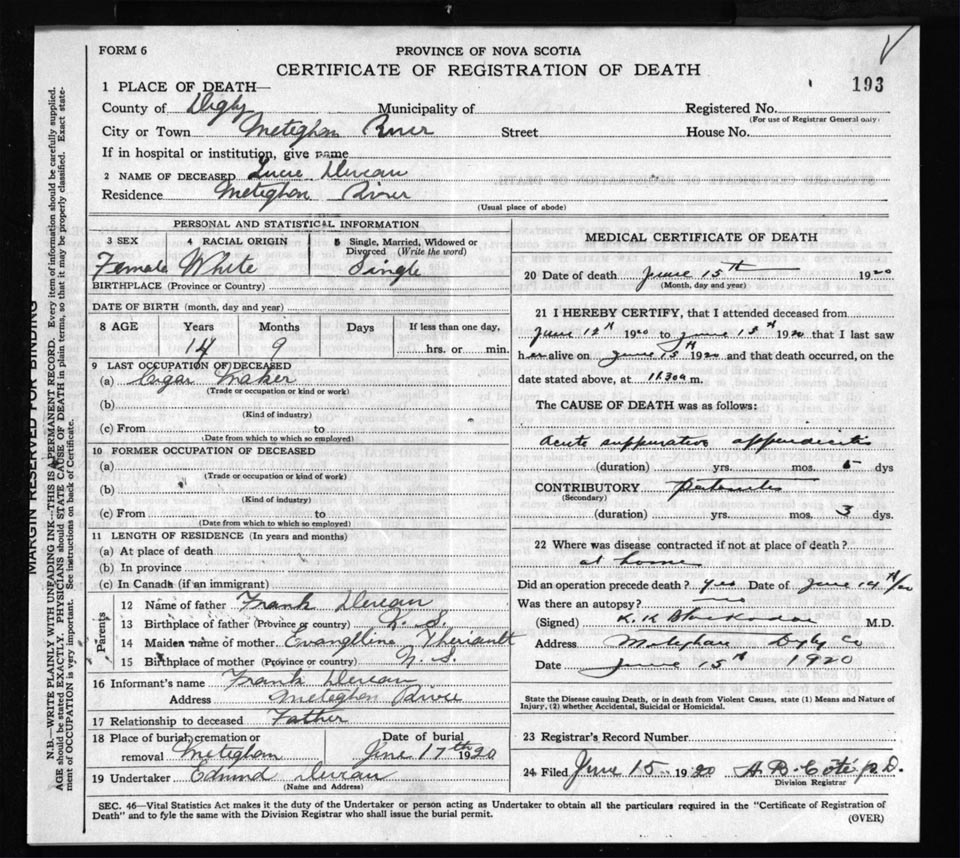 FORM 6
PROVINCE OF NOVA SCOTIA
CERTIFICATE OF REGISTRATION OF DEATH
193
1 PLACE OF DEATH—
County of Digby Municipality of Registered No.
(For use of Registrar General only)
City or Town Meteghan River Street House No.
If in hospital or institution, give name
2 NAME OF DECEASED Lucie Deveau
Residence Meteghan River
(Usual place of abode)
PERSONAL AND STATISTICAL INFORMATION
3 SEX 4 RACIAL ORIGIN 5 Single, Married, Widowed or
Divorced (Write the word)
Female White Single
BIRTHPLACE (Province or Country)
DATE OF BIRTH (month, day and year)
8 AGE Years Months Days If less than one day,
14 9 hrs. or min.
9 LAST OCCUPATION OF DECEASED
(a) Cigar Maker
(Trade or occupation or kind or work)
(b)
(Kind of industry)
(c) From to
(Date from which to which so employed)
10 FORMER OCCUPATION OF DECEASED
(a)
(Trade or occupation or kind of work)
(b)
(Kind of industry)
(c) From to
(Date from which to which so employed)
11 LENGTH OF RESIDENCE (In years and months)
(a) At place of death
(b) In province
(c) In Canada (if an immigrant)
Parents
12 Name of father Frank Deveau
13 Birthplace of father (Province or country) N. S.
14 Maiden name of mother Evangeline Theriault
15 Birthplace of mother (Province or country) N. S.
16 Informant's name Frank Deveau
Address Meteghan River
17 Relationship to deceased Father
18 Place of burial, cremation or Date of burial
removal Meteghan June 17th 1920
19 Undertaker Edmund Deveau
(Name and Address)
MEDICAL CERTIFICATE OF DEATH
20 Date of death June 15th 1920
(Month, day and year)
21 I HEREBY CERTIFY, that I attended deceased from
June 12th 1920 to June 15th 1920 that I last saw
her alive on June 15th 1920 and that death occurred, on the
date stated above, at 11.30 a m.
The CAUSE OF DEATH was as follows:
acute suppurative appendicitis
(duration) yrs. mos. 5 dys
CONTRIBUTORY Peritonitis
(Secondary)
(duration) yrs. mos. 3 dys.
22 Where was disease contracted if not at place of death?
at home
Did an operation precede death? yes Date of June 14th/20
Was there an autopsy? no
(Signed) M.D.
Address Meteghan Digby Co
Date June 15th 1920
State the Disease causing Death, or in death from Violent Causes, state (1) Means and Nature of
Injury, (2) whether Accidental, Suicidal or Homicidal.
23 Registrar's Record Number
24 Filed June 15 1920
Division Registrar
SEC. 46—Vital Statistics Act makes it the duty of the Undertaker or person acting as Undertaker to obtain all the particulars required in the "Certificate of Registration of
Death" and to fyle the same with the Division Registrar who shall issue the burial permit.
(OVER)
MARGIN RESERVED FOR BINDING
N.B.—WRITE PLAINLY WITH UNFADING INK—THIS IS A PERMANENT RECORD. Every item of information should be carefully supplied.
AGE should be stated EXACTLY. PHYSICIANS should STATE CAUSE OF DEATH in plain terms, so that it may be properly classified. Exact state-
ment of OCCUPATION is very important. See instructions on back of Certificate.